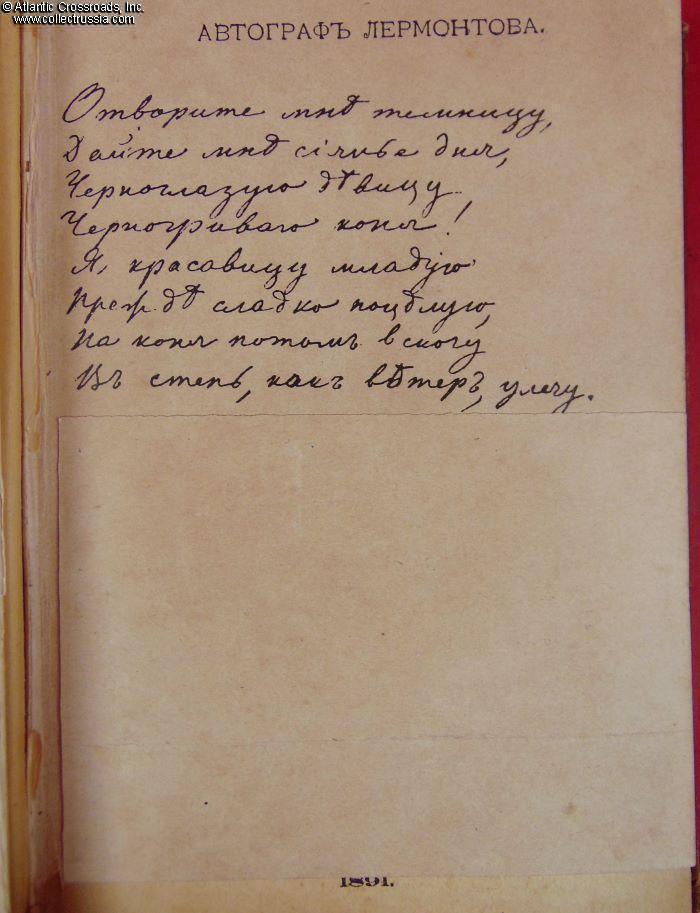 © Atlantic Crossroads, Inc.
www.collectrussia.com
АВТОГРАФЪ ЛЕРМОНТОВА.
Отворите мнѣ темницу,
Дайте мнѣ сіянье дня,
Черноглазую дѣвицу,
Черногриваго коня!
Я, красавицу младую
Прежде сладко поцѣлую,
На коня потомъ вскочу
Въ степь, какъ вѣтеръ, улечу.
1891.